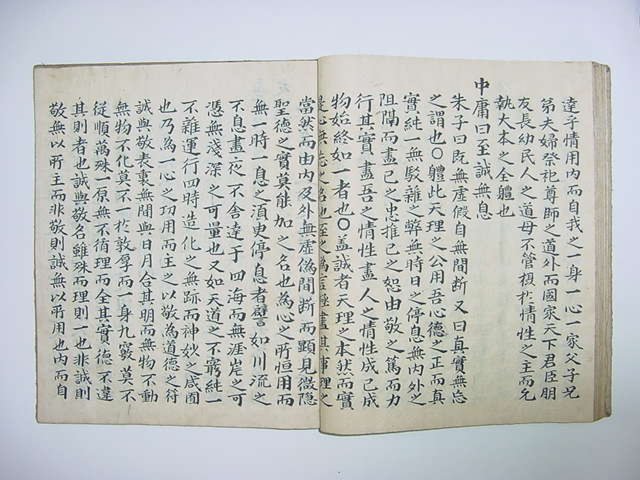 達乎情用內而自我之一身一心一家父子兄
弟夫婦祭祀尊師之道外而國家天下君臣朋
友長幼民人之道毋不管攝於情性之主而允
執大本之全體也
中庸曰至誠無息
朱子曰旣無虛假自無間斷又曰真實無妄
之謂也〇體此天理之公用吾心德之正而真
實純一無駁雜之弊無時日之停息無內外之
阻隔而盡己之忠推己之恕由敬之篤而力
行其實盡吾之情性盡人之情性成己成
物始終如一者也〇盖誠者天理之本然而實
理之
當然而由內及外無虛僞間斷而顯見微隱
聖德之實莫能加之名也爲心之所恒用而
無一時一息之須更停息者譬如川流之
不息晝夜不舍達于四海而無涯岸之可
憑無淺深之可量也又如天道之不窮純一
不雜運行四時造化之無跡而神妙之感圄
也乃爲一心之功用而主之以敬爲道德之符
誠與敬表裏無間與日月合其明而無物不動
無物不化莫不一於敦厚而一身九竅莫不
從順萬殊一原無不循理而全其實德不違
其則者也誠與敬名雖殊而理則一也非誠則
敬無以所主而非敬則誠無以所用也內而自